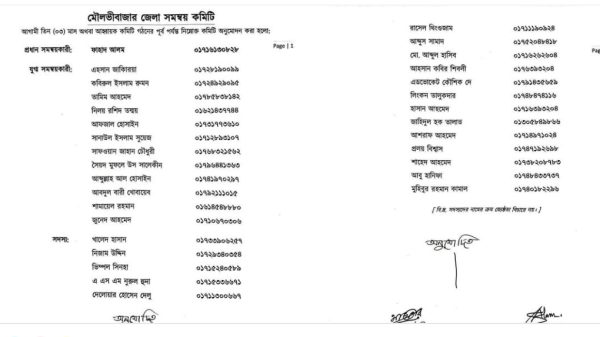 মৌলভীবাজার জেলা সমন্বয় কমিটি
আগামী তিন (০৩) মাস অথবা আহ্বায়ক কমিটি গঠনের পূর্ব পর্যন্ত নিম্নোক্ত কমিটি অনুমোদন করা হলো:
Page | 1
প্রধান সমন্বয়কারী: ফাহাদ আলম ০১৭১৬১৩০৮২৮
যুগ্ম সমন্বয়কারী: এহসান জাকারিয়া ০১৭২৮১৯০০৯৯
কবিরুল ইসলাম রুমন ০১৭২৪৯২৯০৯৫
তামিম আহমেদ ০১৭৮৫৮৩৮১৪২
নিলয় রশিদ তন্ময় ০১৬২১৪৩৭৭৪৪
আফজাল হোসাইন ০১৭৩১৭৭৩৬১০
সানাউল ইসলাম সুয়েজ ০১৭১২৮৯৩১০৭
সাফওয়ান জাহান চৌধুরী ০১৭৬৮৩২১৫৬২
সৈয়দ মুফলে উস সালেকীন ০১৭৯৬৪৪১৩৬৩
আব্দুল্লাহ আল হোসাইন ০১৭৪১৯৭০২৯৭
আবদুল বারী খোবায়েব ০১৭৯২১১১০১৫
শামায়েল রহমান ০১৬১৪৫৮৮৮৮০
জুনেদ আহমেদ ০১৭১০৬৭০৩০৬
সদস্য: খালেদ হাসান ০১৭৩৩৯০৬২৫৭
নিজাম উদ্দিন ০১৭২৯৩৪০৩৫৪
ডিম্পল সিনহা ০১৭১৫২৪০৫৮৯
এ এস এম নুরুল হুদা ০১৭১৫৩৩৬৬৭১
দেলোয়ার হোসেন দেলু ০১৭১১৩০০৬৬৭
অনুমোদিত
রাসেল থিংগুজাম ০১৭১১১৯০৯২৪
আব্দুস সামাদ ০১৭৫২০৪৮৪১৮
মো. আব্দুল হাসিব ০১৭১৬২৬২৬০৪
আহসান কবির শিকলী ০১৭৬৩৯৩২০৪
এডভোকেট কৌশিক দে ০১৭৯১৪৩৫৬৫৯
লিংকন তালুকদার ০১৭৪৮৪৭৪১১৬
হাসান আহমেদ ০১৭১৬৩৯৩২০৪
জাহিদুল হক তালাত ০১৩০৫৮৪৯৮৬৬
আশরাফ আহমেদ ০১৭১৪৯৭১০২৪
প্রলয় বিশ্বাস ০১৭৪৭১৯২৬৯৮
শাহেদ আহমেদ ০১৭৩৮২০৮৭৮৩
আবু হানিফা ০১৭৪৮৪৩৩৭৩৭
মুহিবুর রহমান কামাল ০১৭৪০১৮২২৯৬
[বি.দ্র. সদস্যদের নামের ক্রম জ্যেষ্ঠতা বিচারে নয়।]
অনুমোদিত